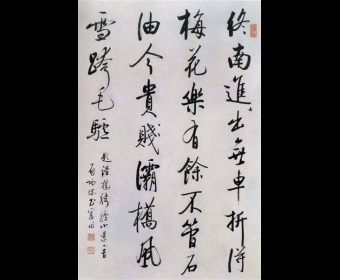 終南進士出無車折得
梅花樂有餘不管石
由今貴賤灞橋風
雪跨毛驢